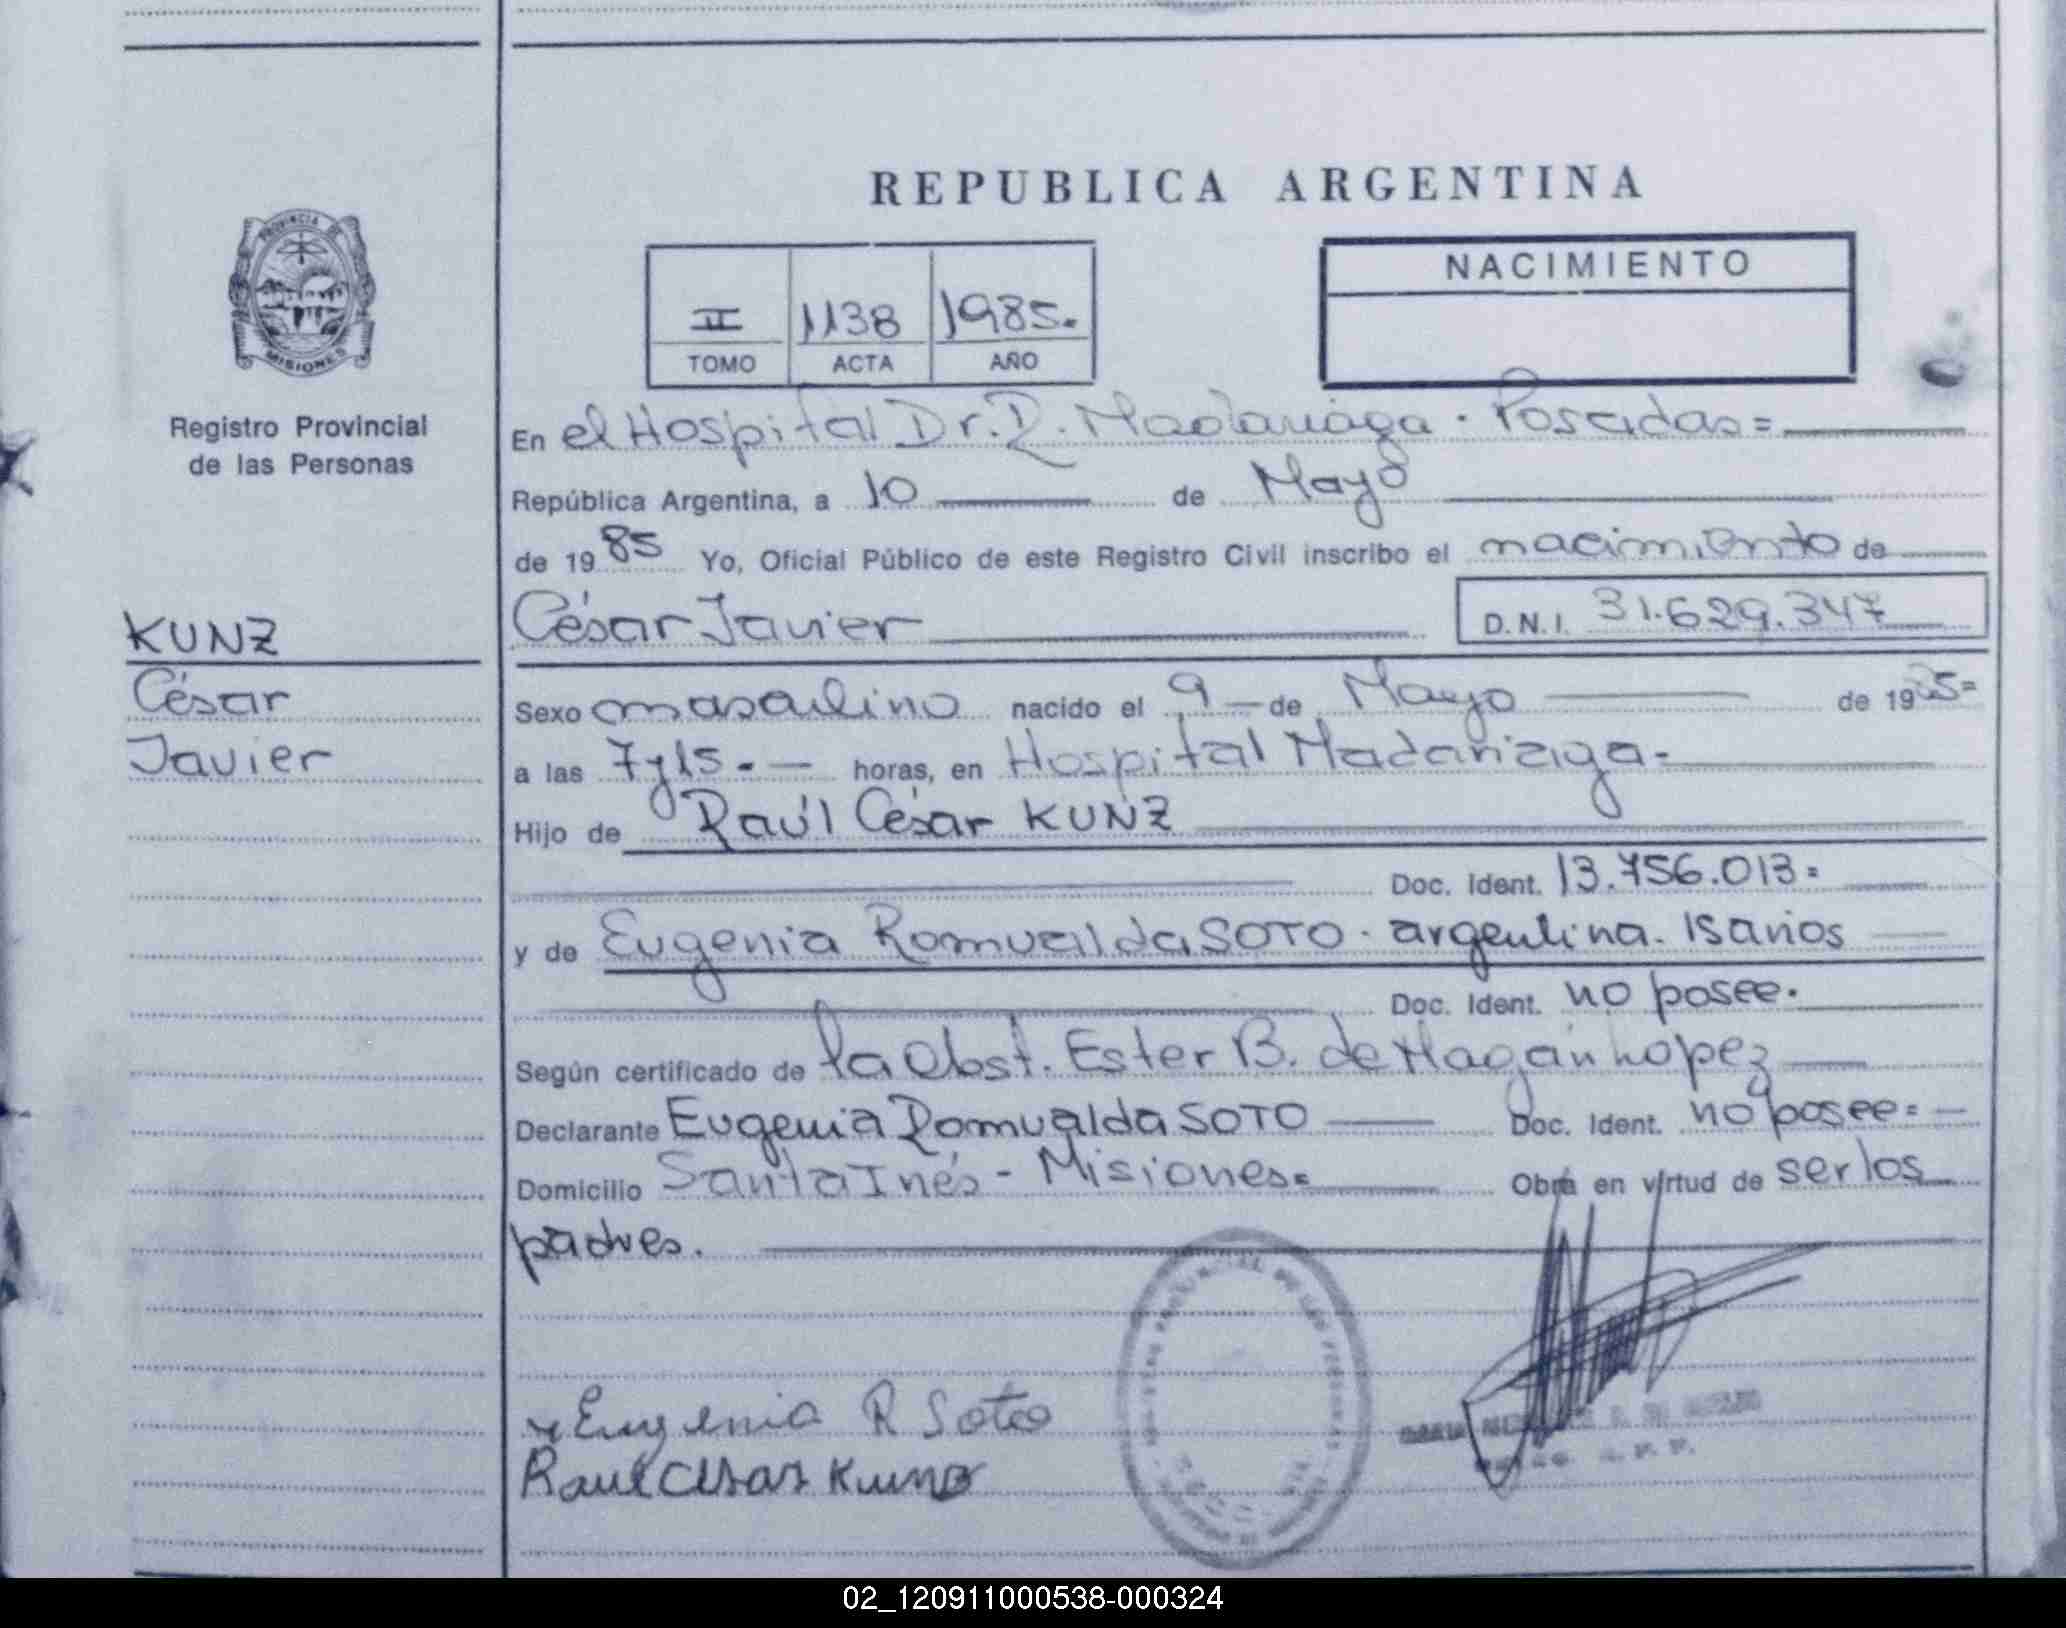 REPUBLICA ARGENTINA
PROVINCIA DE
MISIONES
Registro Provincial
de las Personas
KUNZ
César
Javier
II 1138 1985.
TOMO ACTA AÑO
NACIMIENTO
En el Hospital Dr. R. Madariaga. Posadas=
República Argentina, a 10 de Mayo
de 1985 Yo, Oficial Público de este Registro Civil inscribo el nacimiento de
César Javier D.N.I. 31.629.347
Sexo masculino nacido el 9 de Mayo de 1985=
a las 7y15.- horas, en Hospital Madariaga-
Hijo de Raúl César KUNZ
Doc. Ident. 13.756.013=
y de Eugenia Romualda SOTO. argentina. 15 años
Doc. Ident. no posee.
Según certificado de la Obst. Ester B. de
Declarante Eugenia Romualda SOTO Doc. Ident. no posee=
Domicilio Santa Inés - Misiones= Obra en virtud de ser los
padres.
Eugenia R Soto
Raul Cesar Kunz
02_120911000538-000324